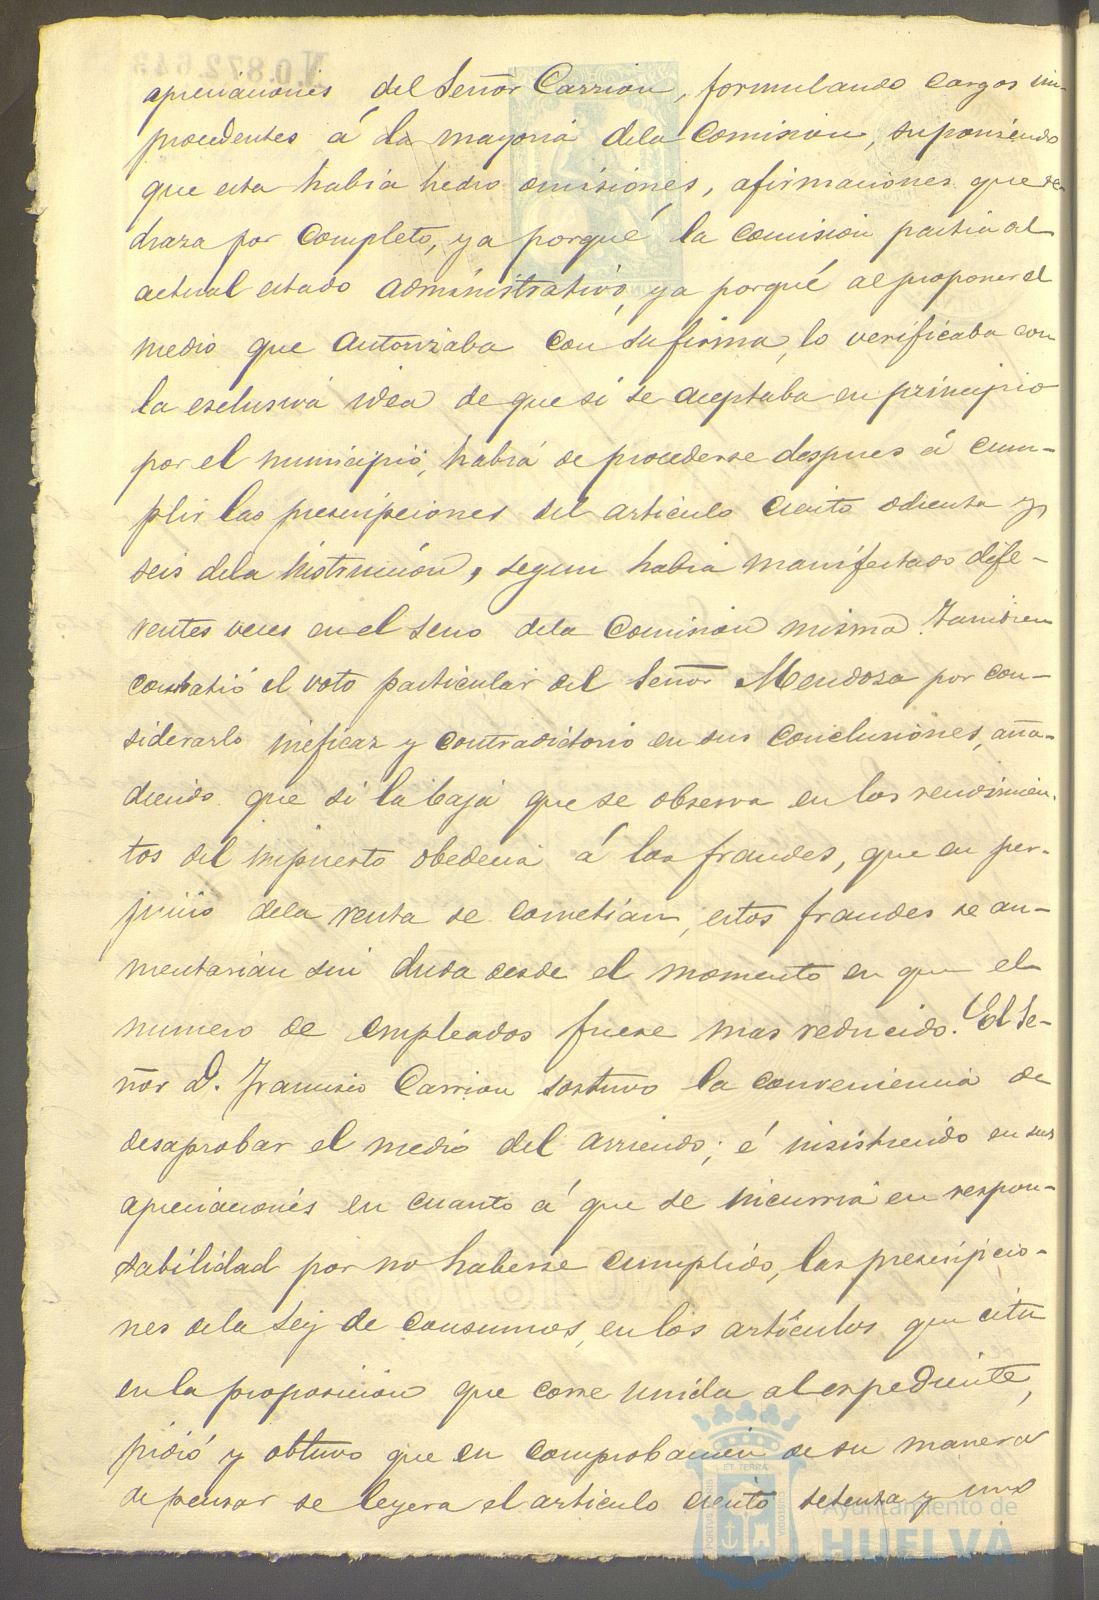 apreciaciones del Señor Carrion, formulando cargos im-
procedentes á la mayoria dela Comision, suponiendo
que esta habia hecho omisiones, afirmaciones que re-
chaza por completo, ya porqué la comision partia al
actual estado administrativo, ya porqué al proponer el
medio que autorizaba con su firma, lo verificaba con
la esclusiva idea de que si se aceptaba en principio
por el municipio, habia de procederse despues á cum-
plir las prescripciones del articulo ciento ochenta y
seis dela instruccion, segun habia manifestado dife-
rentes veces en el seno dela Comision misma. Tambien
combatió el voto particular del Señor Mendoza por con-
siderarlo ineficaz y contradictorio en sus conclusiones, aña-
diendo que si la baja que se observa en los rendimien-
tos del impuesto obedecia á los fraudes, que en per-
juicio dela renta se cometian, estos fraudes se au-
mentarian sin duda desde el momento en que el
numero de empleados fuese mas reducido. El Se-
ñor D. Francisco Carrion sostuvo la conveniencia de
desaprobar el medio del arriendo; é insistiendo en sus
apreciaciones en cuanto á que se incurria en respon-
sabilidad por no haberse cumplido, las prescripcio-
nes dela Ley de consumos, en los artículos que cita
en la proposicion que corre unida al espediente,
pidió y obtuvo que en comprobacion de su manera
de pensar se leyera el articulo ciento setenta y uno
N.0.872.643
PORTUS MARIS
ET TERRÆ
CUSTODIA
Ayuntamiento de
HUELVA